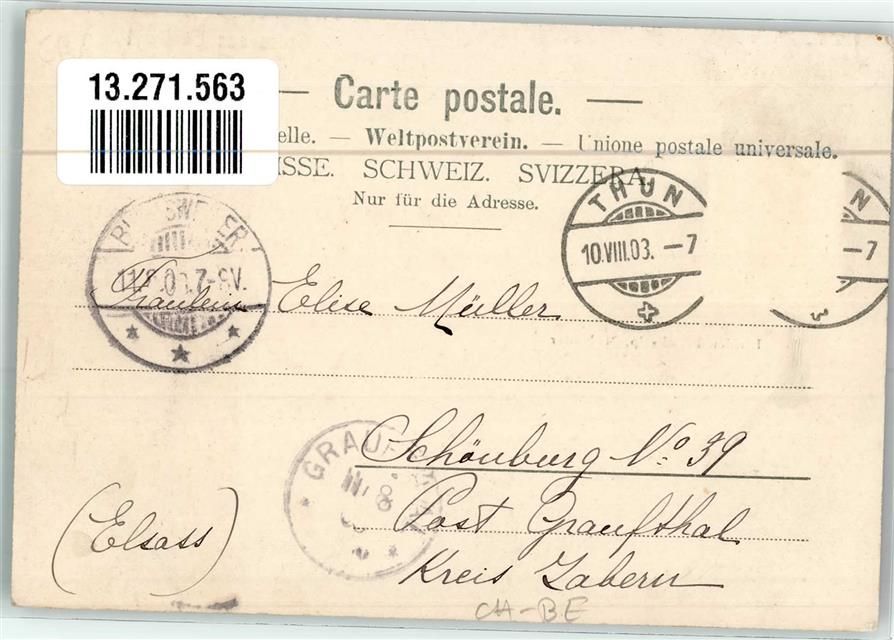 13.271.563
— Carte postale. —
elle. — Weltpostverein. — Unione postale universale.
ISSE. SCHWEIZ. SVIZZERA.
Nur für die Adresse.
THUN
10.VIII.03. –7
N
–7
Fräulein Elise Müller
Schönburg No. 39
Post Graufthal
Kreis Zabern
(Elsass)
GRAUF
CH-BE